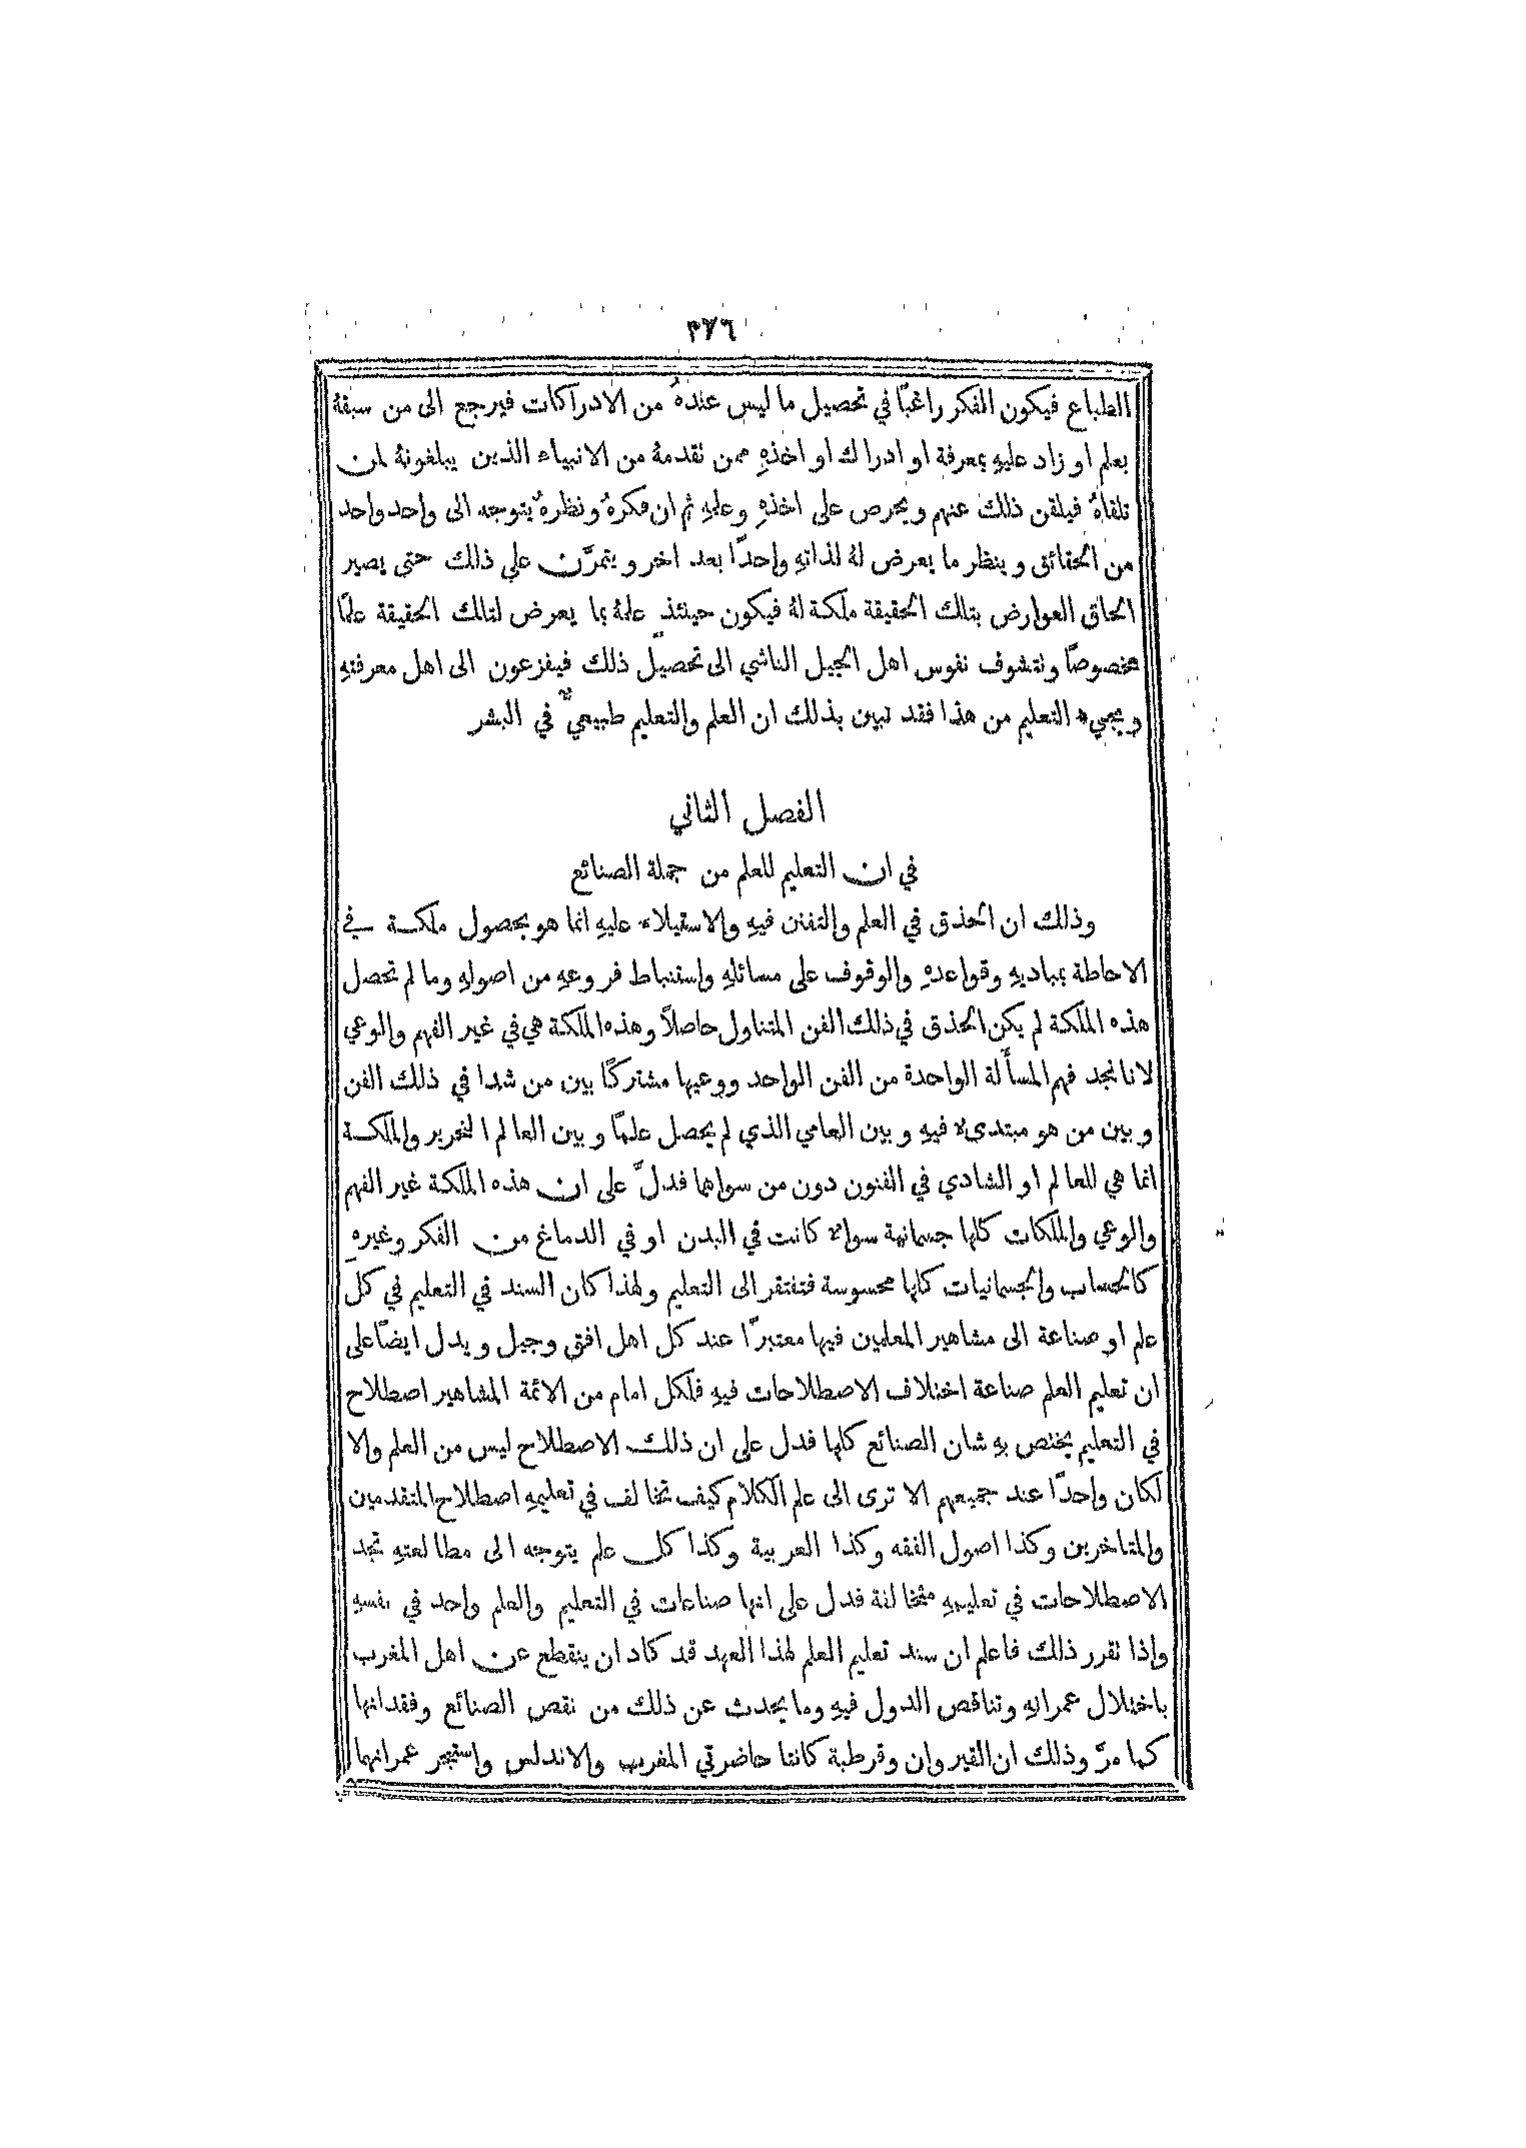 ٣٧٦
الطباع فيكون الفكر راغبًا في تحصيل ما ليس عندهُ من الادراكات فيرجع الى من سبقهُ
بعلم او زاد عليهِ بمعرفة او ادراك او اخذهِ ممن تقدمهُ من الانبياء الذين يبلغونهُ لمن
تلقاهُ فيلقن ذلك عنهم ويحرص على اخذهِ وعلمهِ ثم ان فكرهُ ونظرهُ يتوجه الى واحد واحد
من الحقائق وينظر ما يعرض لهُ لذاتهِ واحدًا بعد اخر ويتمرَّن على ذلك حتى يصير
الحاق العوارض بتلك الحقيقة ملكة لهُ فيكون حينئذٍ علمهُ بما يعرض لتلك الحقيقة علمًا
مخصوصًا وتتشوف نفوس اهل الجيل الناشي الى تحصيل ذلك فيفزعون الى اهل معرفتهِ
ويجيء التعليم من هذا فقد تبين بذلك ان العلم والتعليم طبيعيٌّ في البشر
الفصل الثاني
في ان التعليم للعلم من جملة الصنائع
وذلك ان الحذق في العلم والتفنن فيهِ والاستيلاء عليهِ انما هو بحصول ملكة في
الاحاطة بمباديهِ وقواعدهِ والوقوف على مسائلهِ واستنباط فروعهِ من اصولهِ وما لم تحصل
هذه الملكة لم يكن الحذق في ذلك الفن المتناول حاصلاً وهذه الملكة هي في غير الفهم والوعي
لانا نجد فهم المسأَلة الواحدة من الفن الواحد ووعيها مشتركًا بين من شدا في ذلك الفن
وبين من هو مبتدىء فيهِ وبين العامي الذي لم يحصل علمًا وبين العالم النحرير والملكة
انما هي للعالم او الشادي في الفنون دون من سواهما فدلَّ على ان هذه الملكة غير الفهم
والوعي والملكات كلها جسمانية سواء كانت في البدن او في الدماغ من الفكر وغيرهِ
كالحساب والجسمانيات كلها محسوسة فتفتقر الى التعليم ولهذا كان السند في التعليم في كل
علم او صناعة الى مشاهير المعلمين فيها معتبرًا عند كل اهل افق وجيل ويدل ايضًا على
ان تعليم العلم صناعة اختلاف الاصطلاحات فيهِ فلكل امام من الائمة المشاهير اصطلاح
في التعليم يختص بهِ شان الصنائع كلها فدل على ان ذلك الاصطلاح ليس من العلم والا
لكان واحدًا عند جميعهم الا ترى الى علم الكلام كيف تخالف في تعليمهِ اصطلاح المتقدمين
والمتاخرين وكذا اصول الفقه وكذا العربية وكذا كل علم يتوجه الى مطالعتهِ تجد
الاصطلاحات في تعليمهِ متخالفة فدل على انها صناعات في التعليم والعلم واحد في نفسهِ
واذا تقرر ذلك فاعلم ان سند تعليم العلم لهذا العهد قد كاد ان ينقطع عن اهل المغرب
باختلال عمرانهِ وتناقص الدول فيهِ وما يحدث عن ذلك من نقص الصنائع وفقدانها
كما مرَّ وذلك ان القيروان وقرطبة كانتا حاضرتي المغرب والاندلس واستبحر عمرانهما